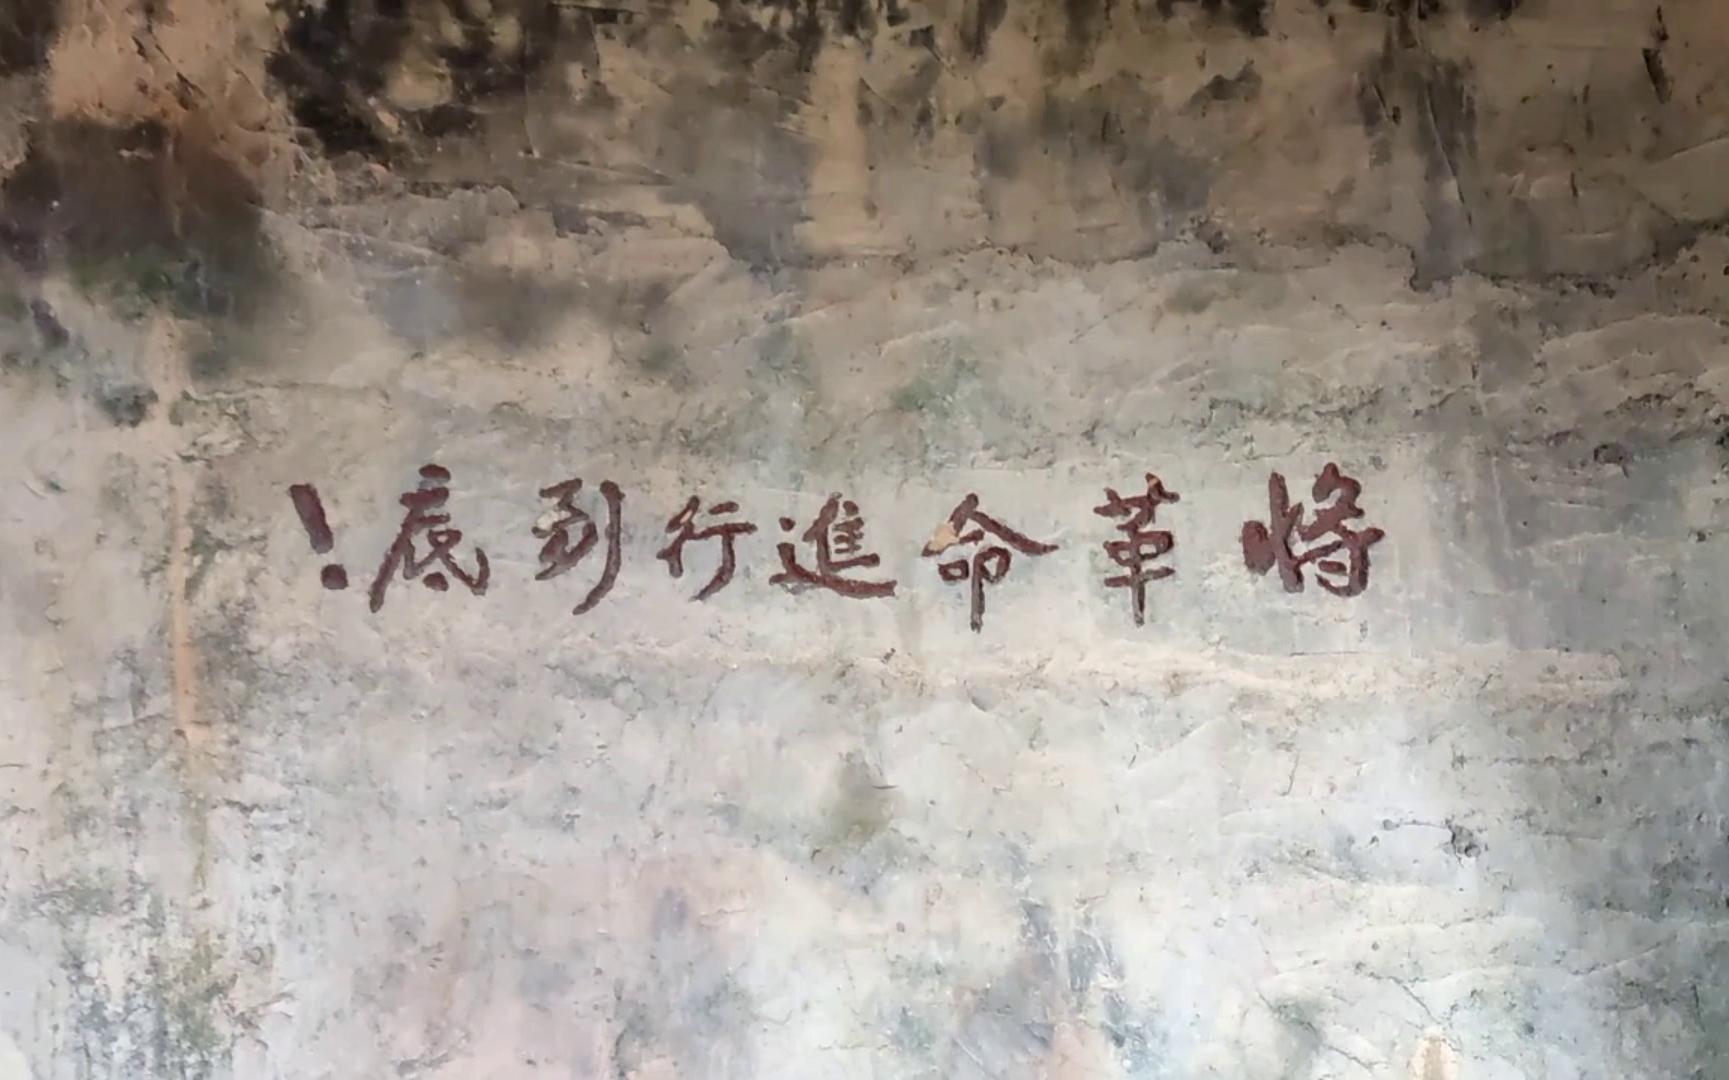 將革命進行到底!